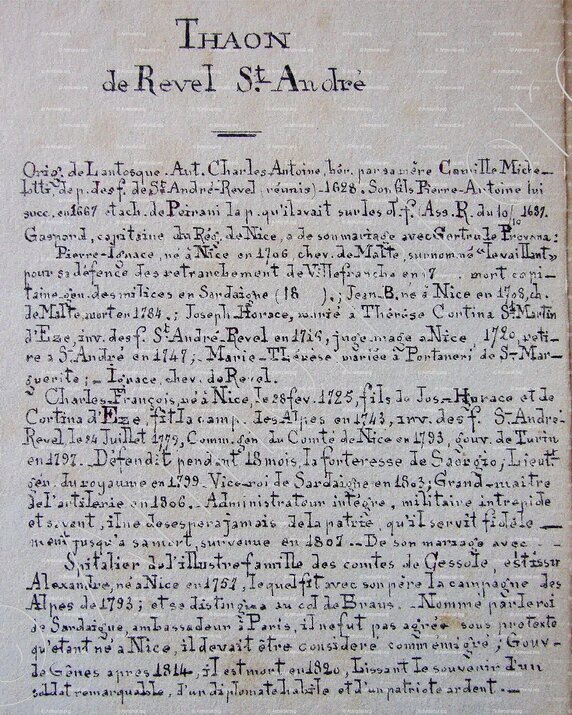 THAON
de Revel St. André
Orig. de Lantosque. Aut. Charles Antoine, hér. par sa mère Camille Miche-
lotti de p. des f. de St. André-Revel (réunis) - 1628. Son fils Pierre-Antoine lui
succ. en 1667 et ach. de Peirani la p. qu'il avait sur les d. f. Ass. R. du 10 1687.
Gaspard, capitaine du Rég. de Nice, a de son mariage avec Gertrude Provana:
Pierre-Ignace, né à Nice en 1706, chev. de Malte, surnommé "le vaillant"
pour sa défence des retranchement de Villefranche en 17 mort capi-
taine gén. des milices en Sardaigne (18 ).; Jean B. né à Nice en 1708, ch.
de Malte, mort en 1784.; Joseph Horace, marié à Thérèse Cortina St Martin
d'Eze, inv. des f. St André-Revel en , juge mage à Nice, 1720, reti-
re à St André en 1747; Marie-Thérèse mariée à Portaneri de St Mar-
guerite; Ignace, chev. de Revel.
Charles-François, né à Nice, le 28 fev. 1725, fils du Jos-Horace et de
Cortina d'Eze, fit la camp. des Alpes en 1743, inv. des f. St André-
Revel le 24 Juillet 1779, Comm. gén du Comté de Nice en 1793, gouv. de Turin
en 1797. Défendit pendant 18 mois, la forteresse de Saorgio; Lieut
gén. du royaume en 1799. Vice-roi de Sardaigne en 1803; Grand-maitre
de l'artilerie en 1806. Administrateur intègre, militaire intrépide
et savent, il ne desespera jamais de la patrie, qu'il servit fidèle-
ment jusqu'a sa mort, survenue en 1807. De son mariage avec
Spitalier de l'illustre famille des comtes de Cessole, est issu
Alexandre, né à Nice en , lequel fit avec son père la campagne des
Alpes de 1793; et se distingua au col de Braus. Nommé par le roi
de Sardaigne, ambassadeur à Paris, il ne fut pas agréé sous pretexte
qu'etant né à Nice, il devait être considere comme émigré; Gouv-
de Gênes apres 1814, il est mort en 1820, Lissant le souvenir d'un
soldat remarquable, d'un diplomate habile et d'un patriote ardent.